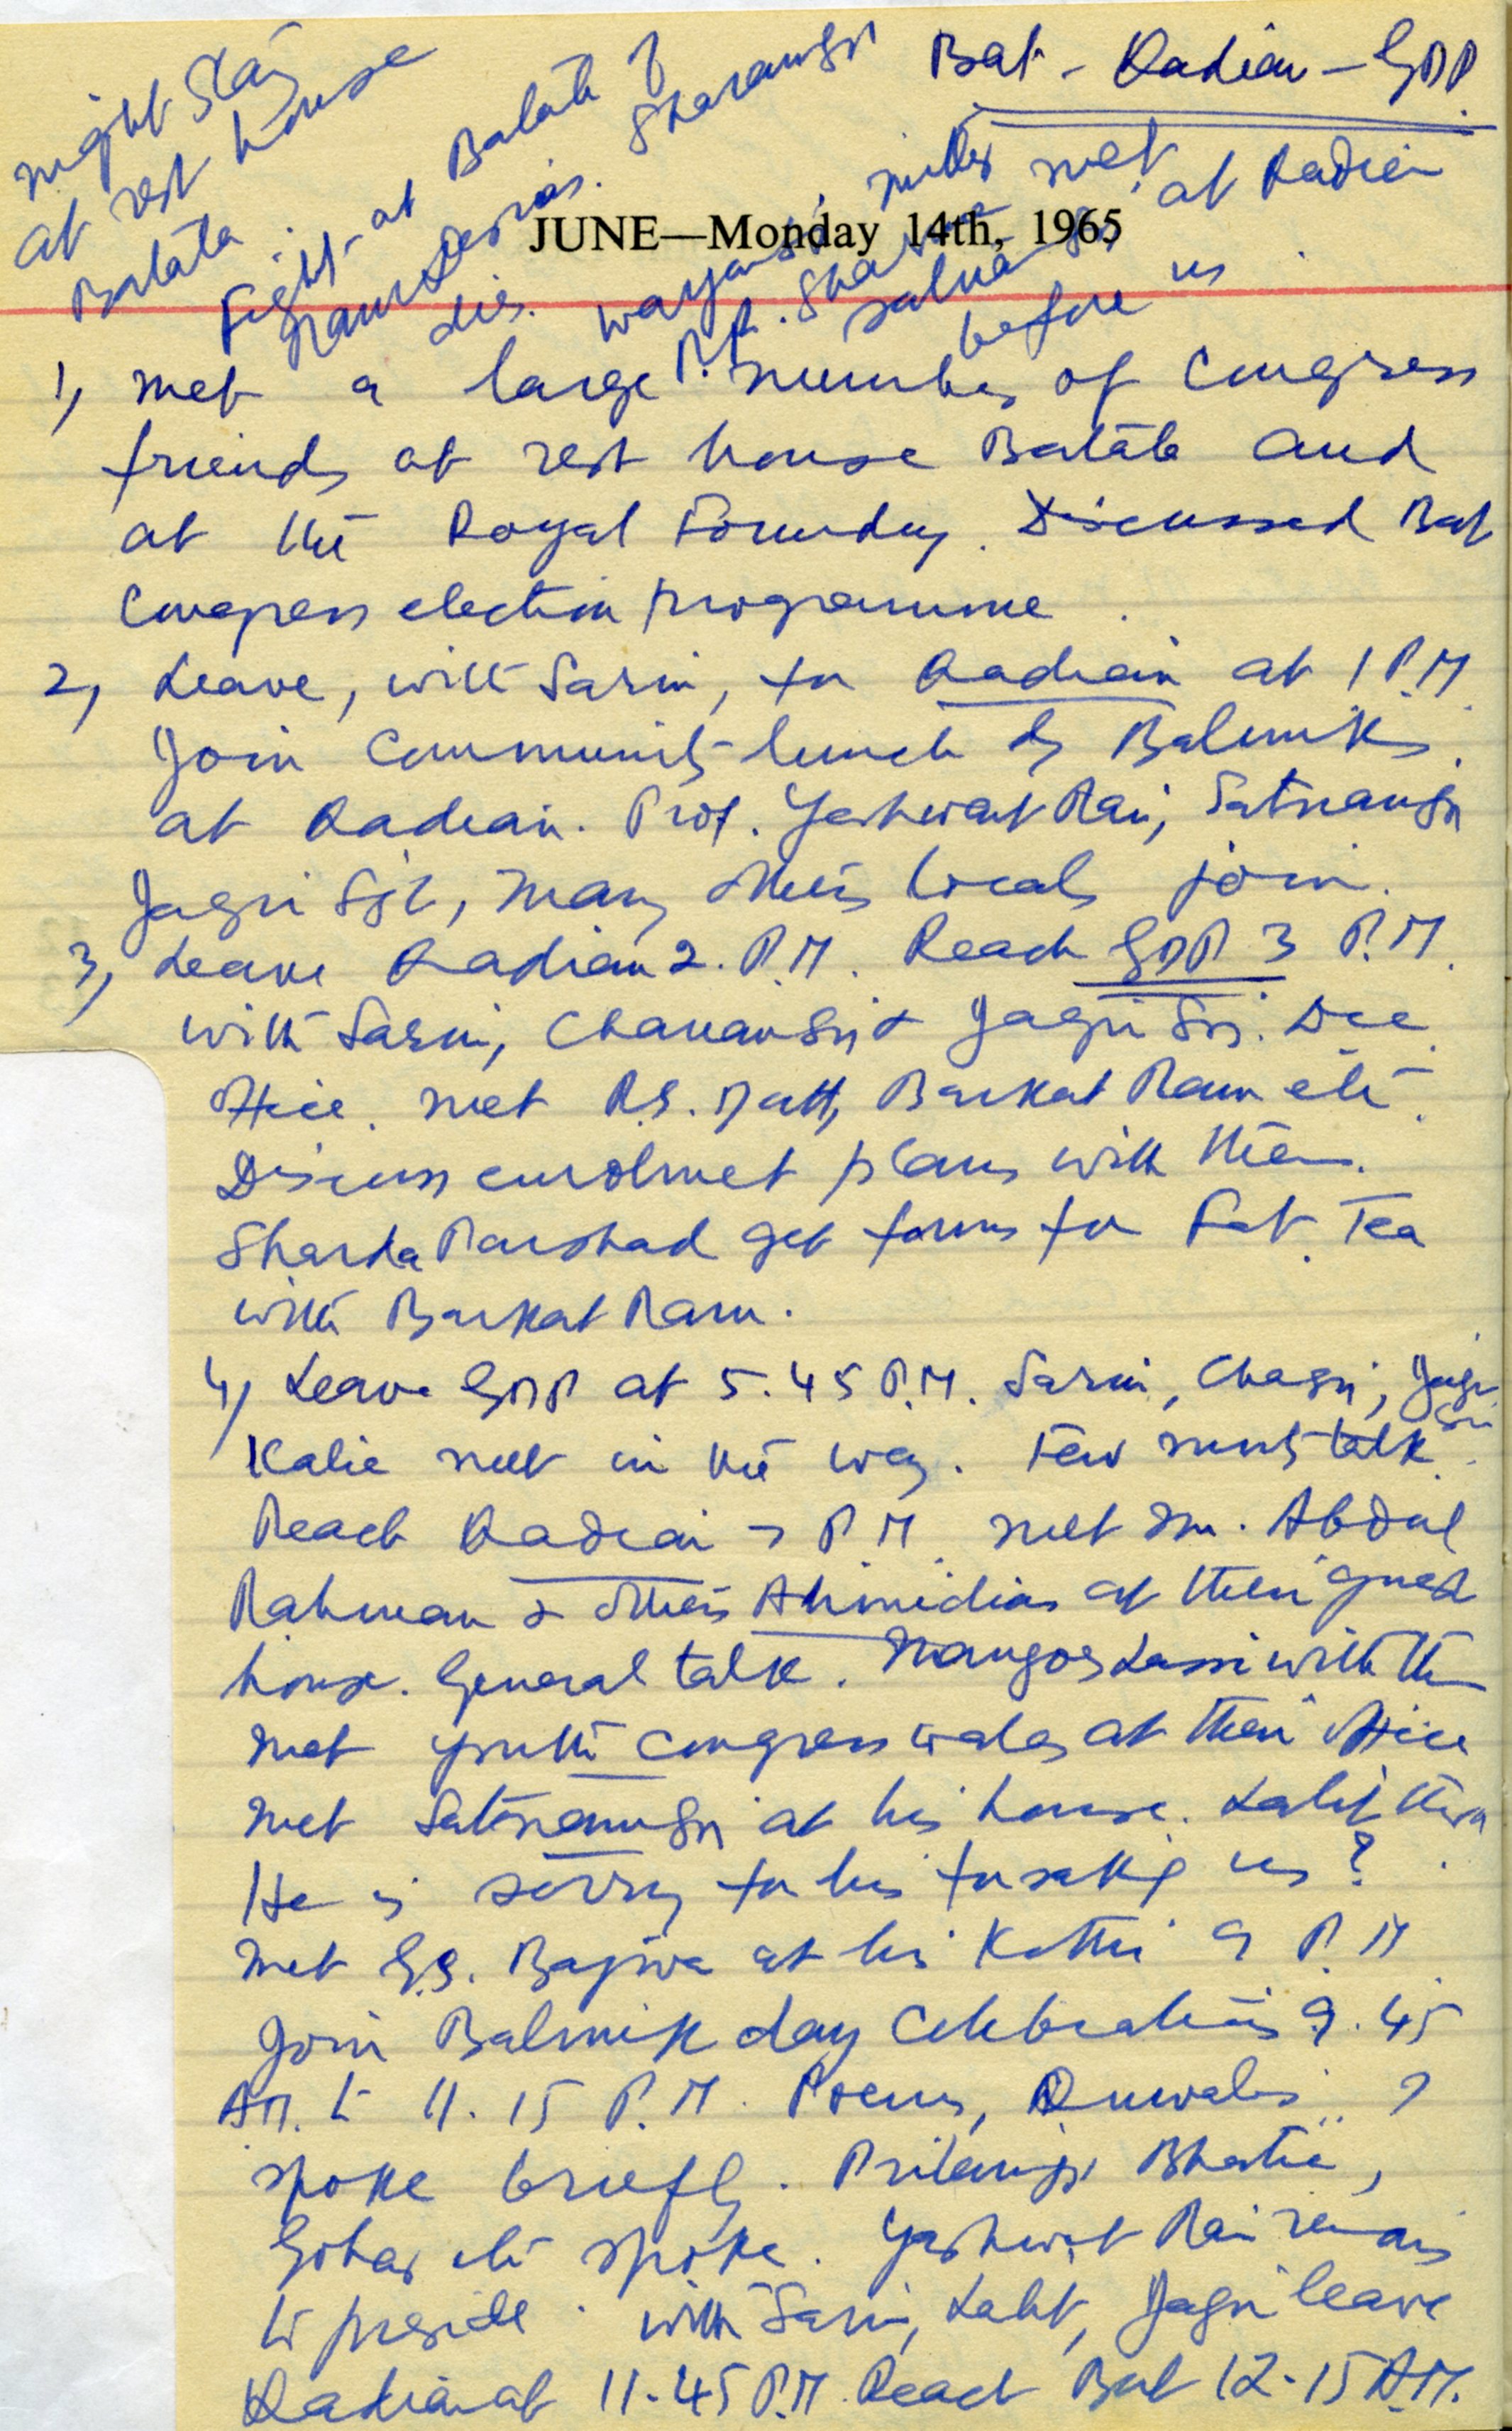 Bat - Qadian - GDP
night stay
at rest house
Batala.
Fight at Batala of
Ramdasias. Sharamsgn
dis.
met
at Qadian
before us.
JUNE—Monday 14th, 1965
1, Met a large number of Congress
friends at rest house Batala and
at the Royal Foundry. Discussed Bat
Congress election programme.
2, Leave, with Sarin, for Qadian at 1 P.M.
Join Community lunch by Balmiks
at Qadian. Prof. Yashwant Rai, Satnamsgn
Jagri Sgh, many others locals join.
3, Leave Qadian 2. P.M. Reach GDP 3 P.M.
with Sarin, Chanan Sgn & Jagri Sgn. Dcc
office. Met R.S. Datt, Barkat Ram etc.
Discuss enrolmet plans with them.
Sharda Parshad get forms for Fat. Tea
with Barkat Ram.
4, Leave GDP at 5.45 P.M. Sarin, Chasgn, Jagri
Sgn
Kalie met in the way. Few munts talk.
Reach Qadian 7 P.M. Met Abdul
Rahman & others Ahmidias at their guest
house. General talk. Mangoes Lassi with them
Met youth congress walas at their office
Met Satnamsgn at his house. Lalit there
He is sorry for his forsaking us?
Met G.S. Bajwa at his Kothi 9 P.M.
Join Balmik day celebrations 9.45
A.M. to 11.15 P.M. Poems, Quwalis. I
spoke briefly. Pritamsgn Bhatia,
etc spoke. Yashwant Rai remains
to preside. With Sarin, Lalit, Jagri leave
Qadian at 11.45 P.M. Reach Bat 12.15 A.M.